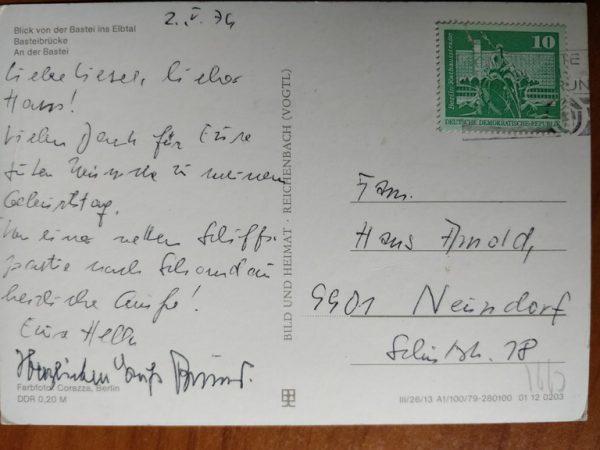 Blick von der Bastei ins Elbtal
Basteibrücke
An der Bastei
Liebe Liesel, lieber
Hans!
Vielen Dank für Eure
guten Wünsche zu meinem
Geburtstag.
Von einer netten Schiffs-
partie nach Schandau
herzliche Grüße!
Eure
Herzlichen Gruß
Farbfoto: Corazza, Berlin
DDR 0,20 M
BILD UND HEIMAT · REICHENBACH (VOGTL)
10
Berlin: Rathausstraße
DEUTSCHE DEMOKRATISCHE REPUBLIK
Fam.
Hans Arnold,
9901 Neundorf
18
III/26/13 A1/100/79-280100 01 12 0203